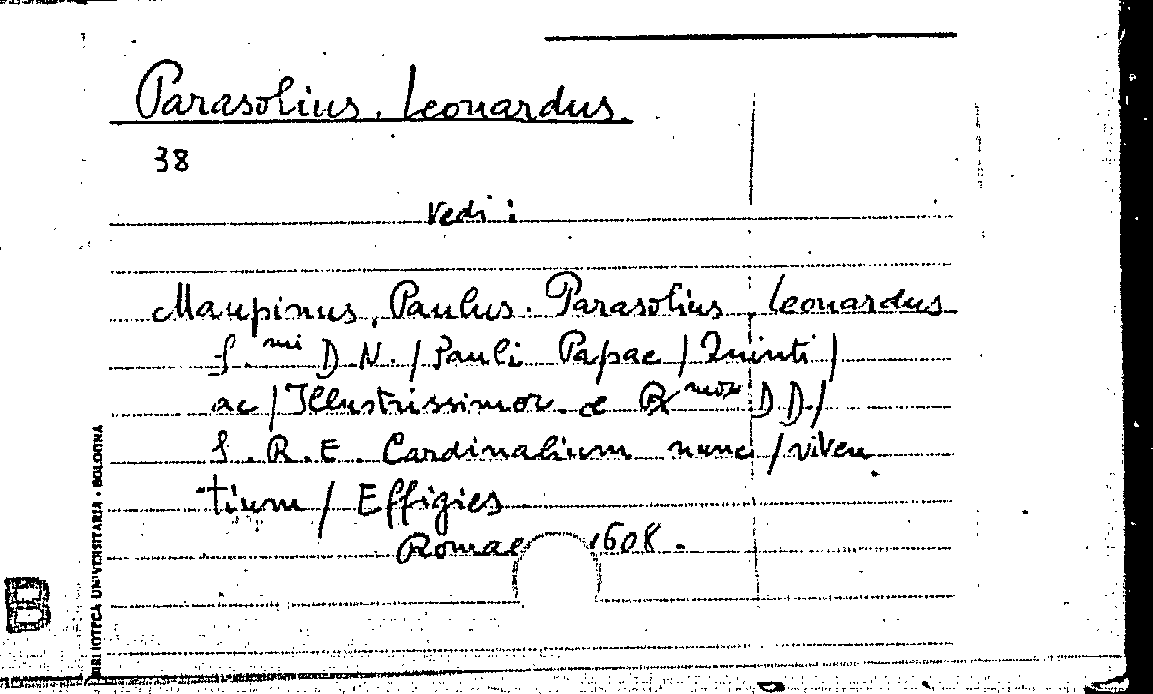 Parasolius, Leonardus.
38
vedi:
Maupinus, Paulus. Parasolius, Leonardus
S.mi D. N. / Pauli Papae / Quinti /
ac / Illustrissimor. e R mor D D. /
S. R. E. Cardinalium nunc / viven
tium / Effigies
Romae 1608.
BIBLIOTECA UNIVERSITARIA - BOLOGNA
B